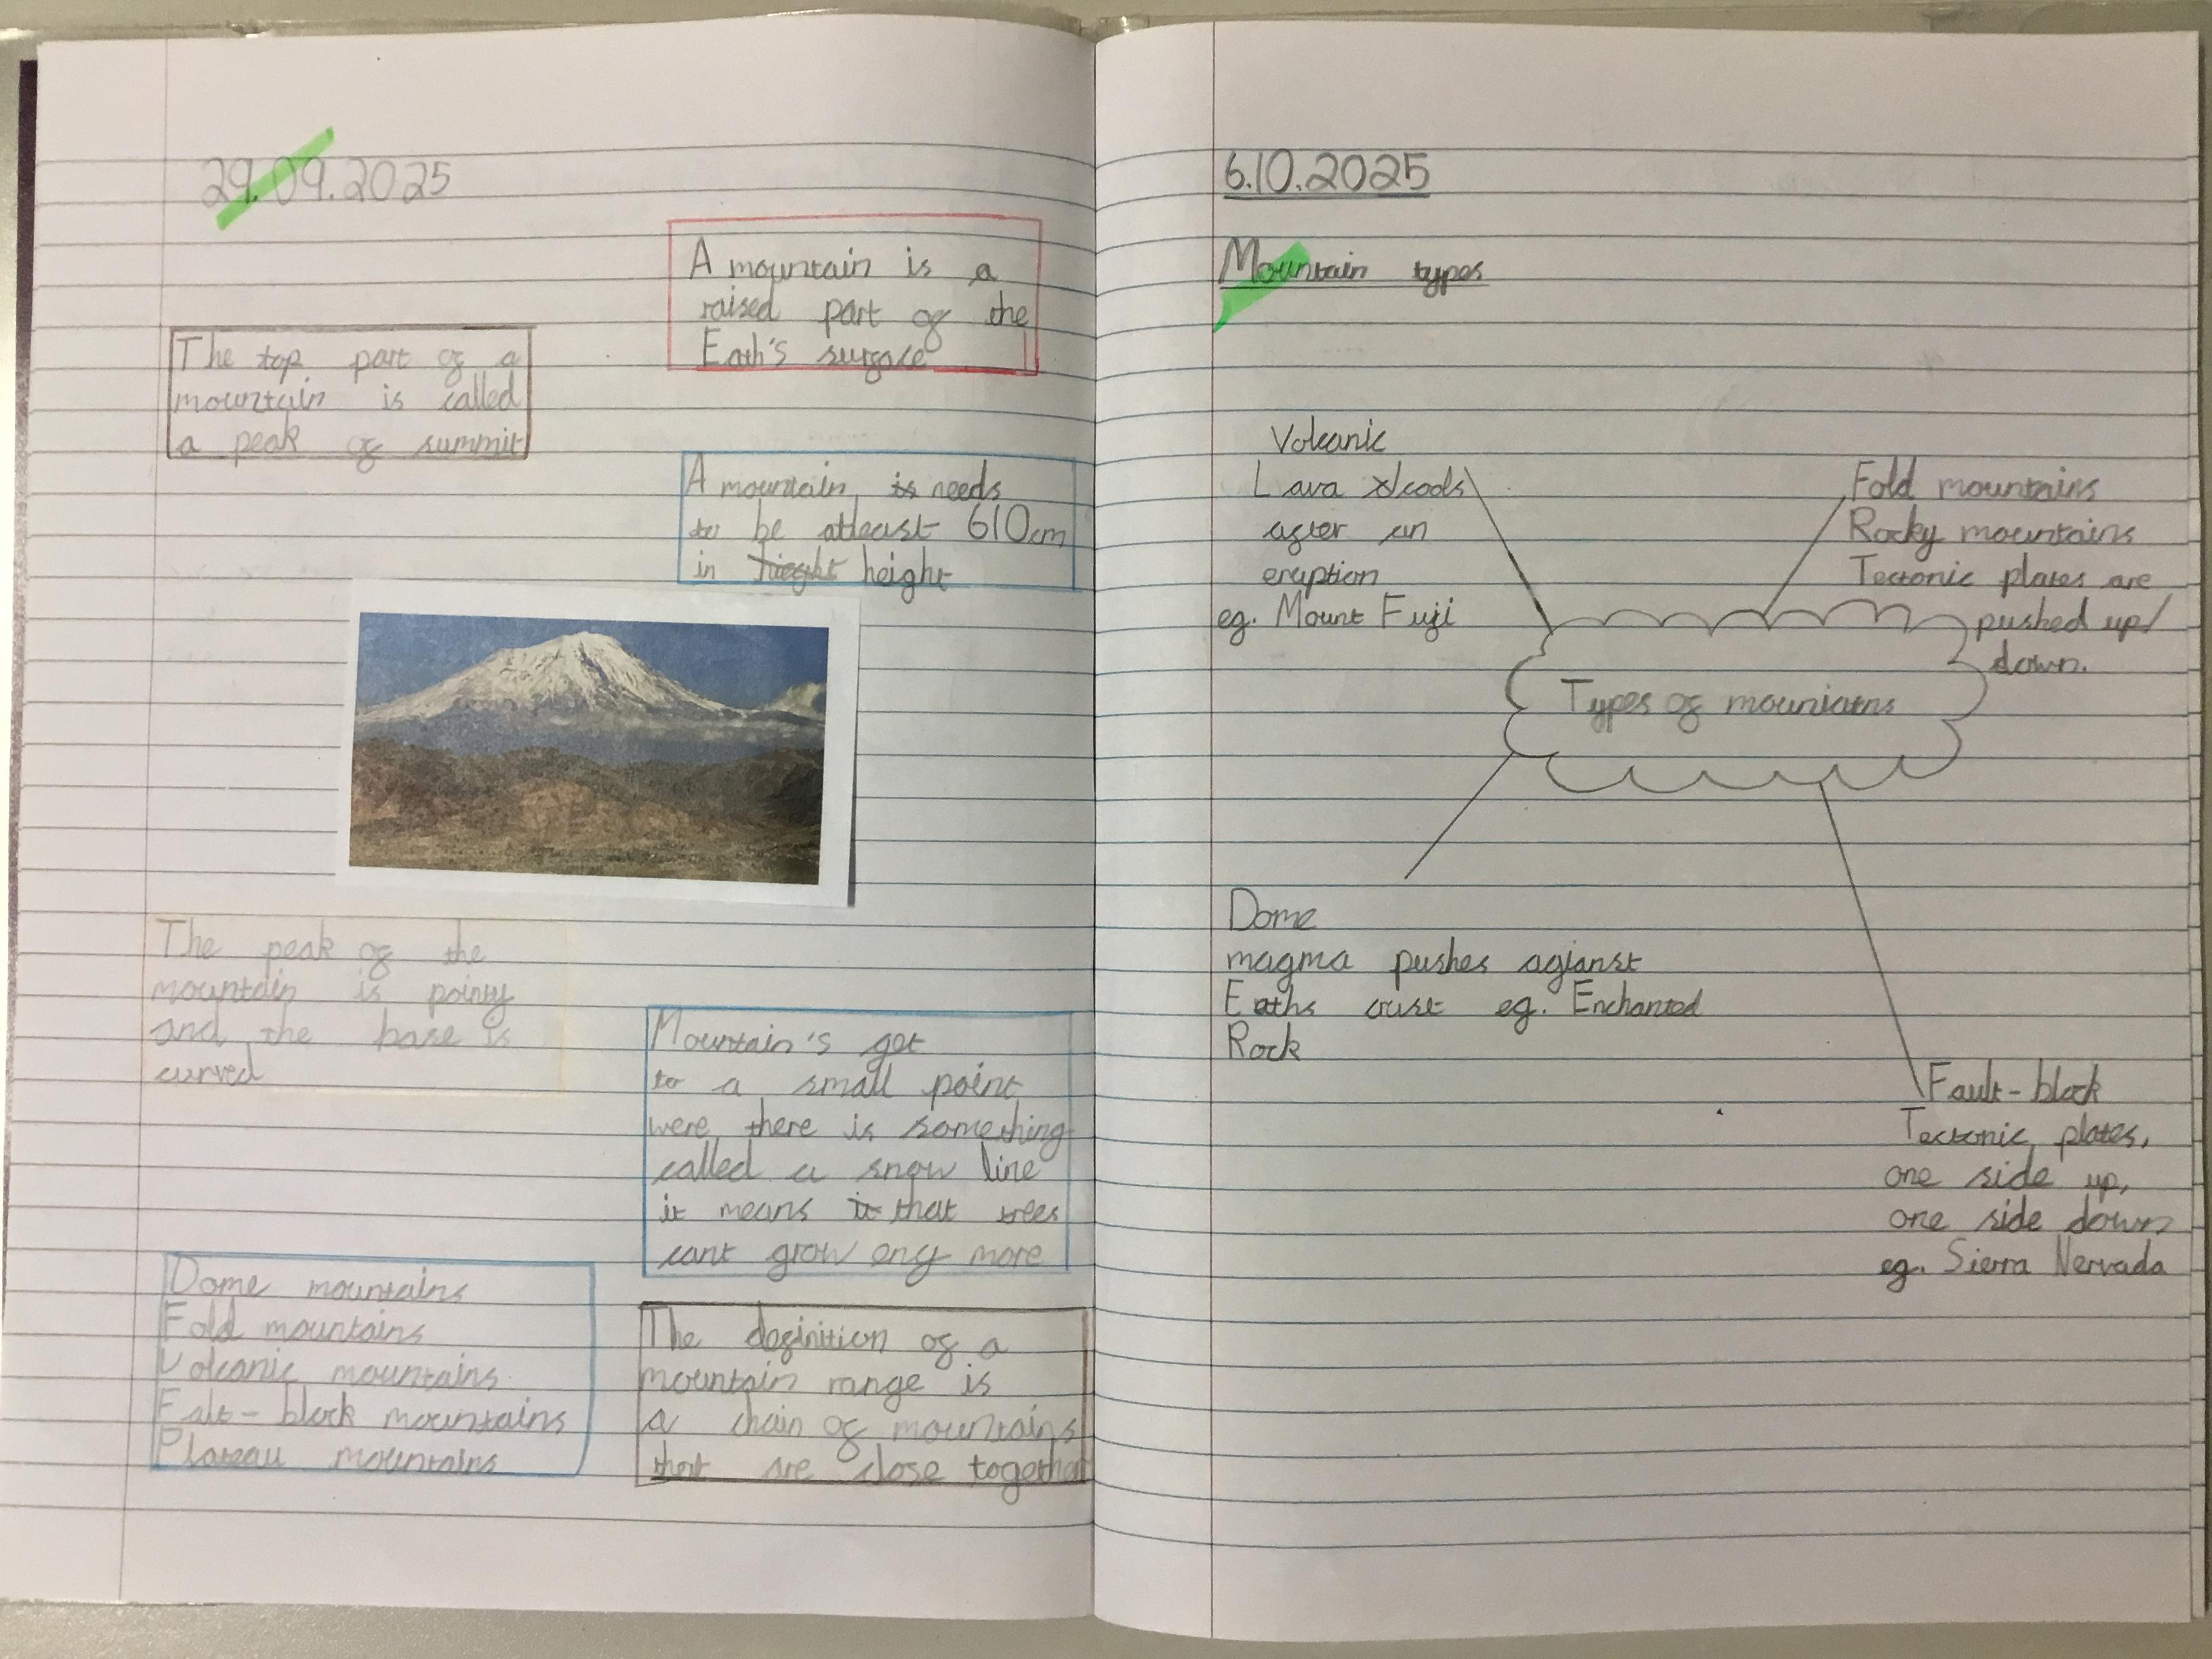 29.09.2025
A mountain is a
raised part of the
Eath's surface
The top part of a
mountain is called
a peak of summit
A mountain is needs
to be atleast 610cm
in height
The peak of the
mountain is pointy
and the base is
curved
Mountain's get
to a small point
were there is something
called a snow line
it means it that trees
cant grow eny more
Dome mountains
Fold mountains
Volcanic mountains
Falt-block mountains
Plateau mountains
The definition of a
mountain range is
a chain of mountains
that are close together
6.10.2025
Mountain types
Volcanic
Lava cools
after an
eruption
eg. Mount Fuji
Fold mountains
Rocky mountains
Tectonic plates are
pushed up/
down.
Types of mouniatns
Dome
magma pushes agianst
Eaths crust eg. Enchanted
Rock
Fault-block
Tectonic plates,
one side up,
one side down
eg. Sierra Nervada